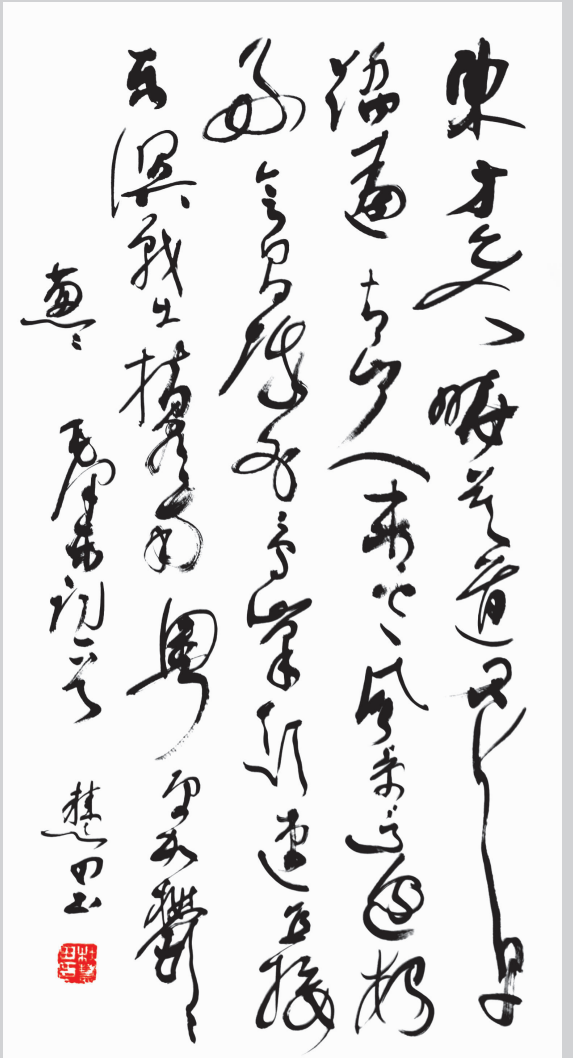 東方欲曉莫道君行早
踏遍青山人未老風景這邊獨
好會昌城外高峰顛連直接
東溟戰士指看南粵更加鬱〻
蔥〻毛澤東詞一首書